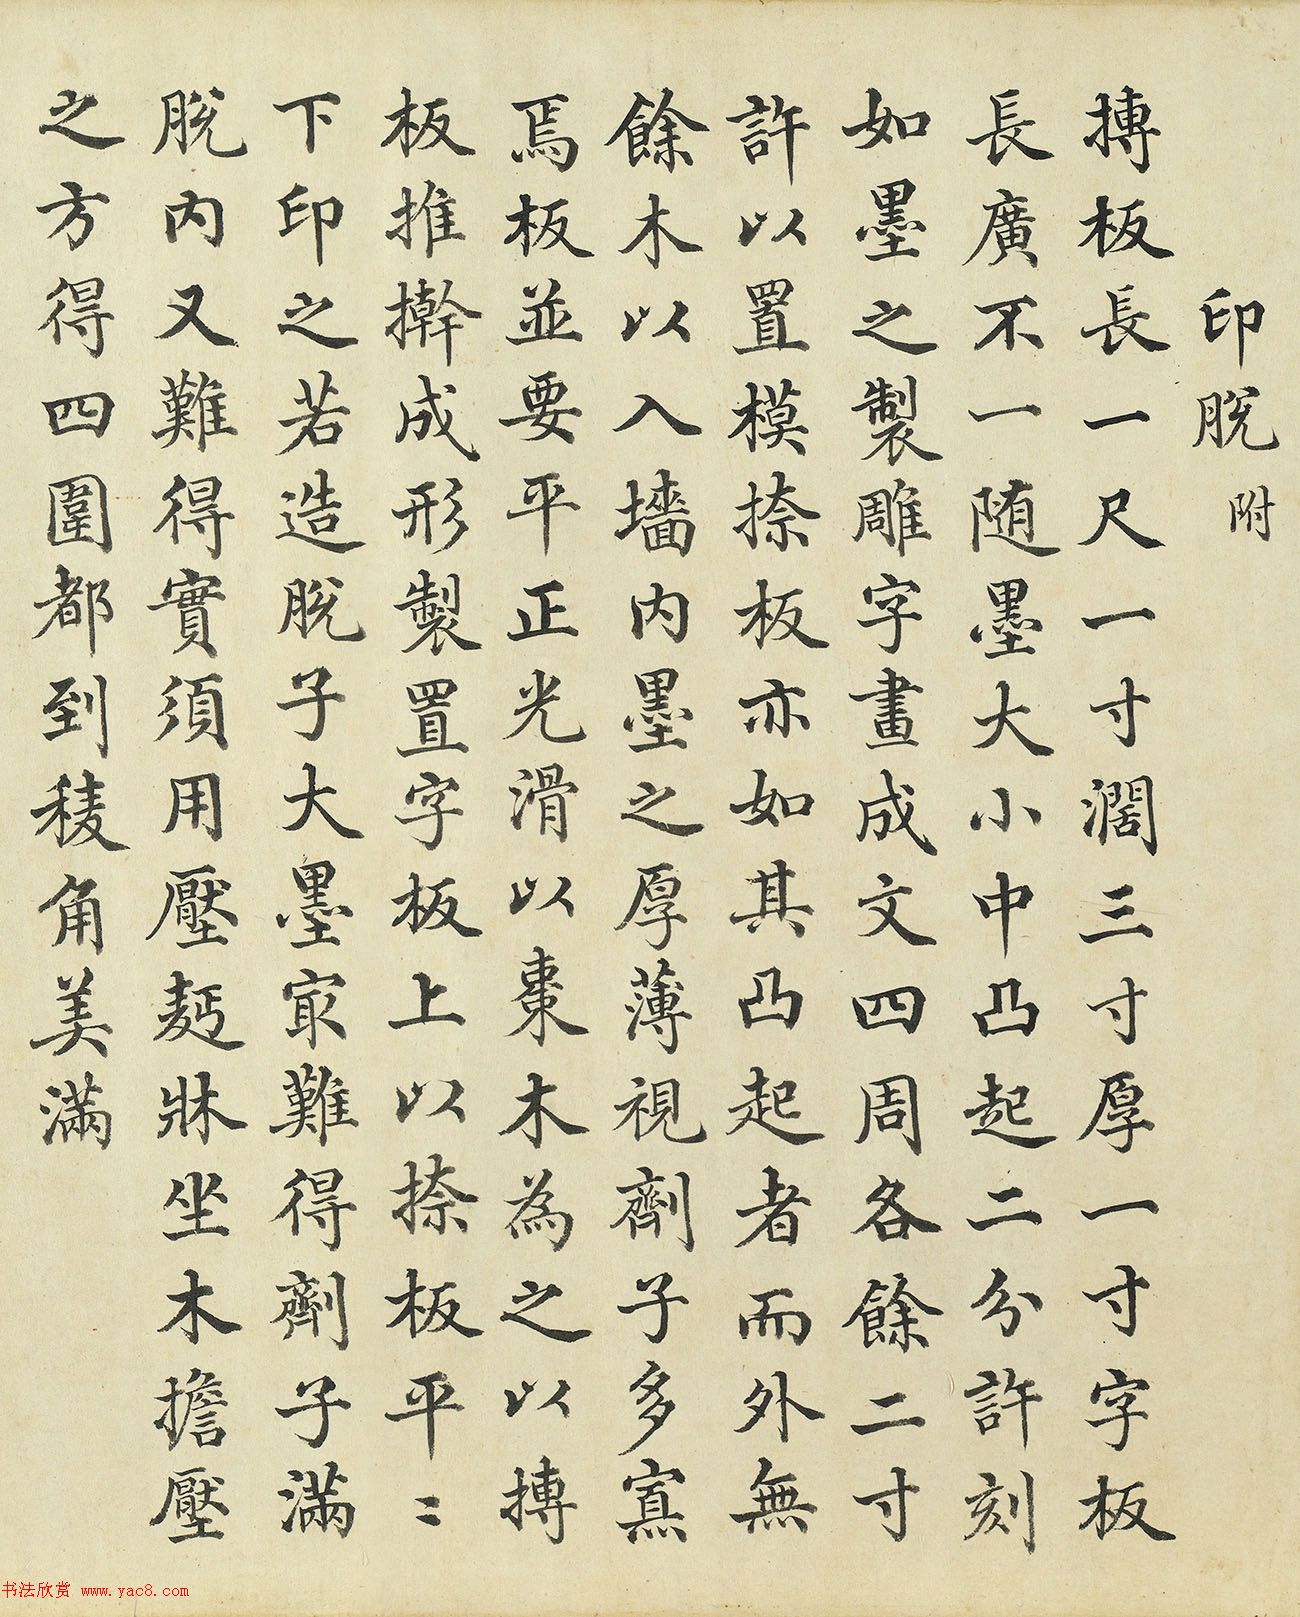 印脫附
摶板長一尺一寸濶三寸厚一寸字板
長廣不一随墨大小中凸起二分許刻
如墨之製雕字畫成文四周各餘二寸
許以置模捺板亦如其凸起者而外無
餘木以入墻内墨之厚薄視劑子多寡
焉板並要平正光滑以棗木為之以摶
板推擀成形製置字板上以捺板平〻
下印之若造脫子大墨㝡難得劑子滿
脫内又難得實須用壓麫牀坐木擔壓
之方得四圍都到稜角美滿
书法欣赏 www.yac8.com